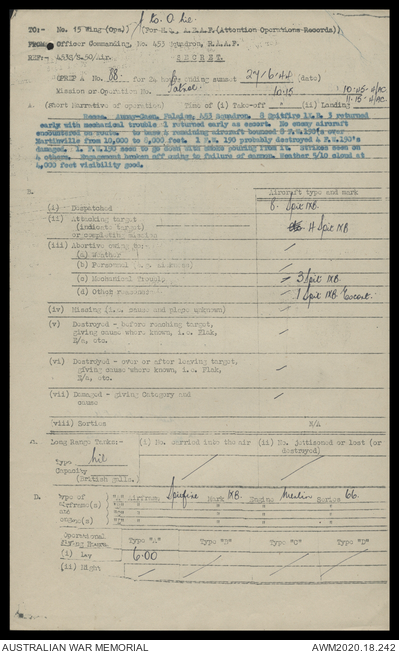 to. O
TO:- No. 15 Wing (Ops)) (For H.Q., A.E.A.F. (Attention Operations Records))
FROM: Officer Commanding, No. 453 Squadron, R.A.A.F.
REF:- 453S/S.50/Air. SECRET
OPREP A No. 88. for 24 hrs. ending sunset 27/6.44 (date)
Mission or Operation No. Time of (i) Take-off 10.15 (ii) Landing 10.45 - 4/AC.
11.15 - 4/AC
A. (Short Narrative of operation)
453 Squadron 8 Spitfire IX.B. 3 returned
early with mechanical trouble 1 returned early as escort. No enemy aircraft
encountered en route to base 4 remaining aircraft bounced 8 F.W.190's over
10,000 to 6,000 feet. 1 F.W. 190 probably destroyed 4 F.W.190's
damaged. 1 F.W. 190 seen to go down with smoke pouring from it. Strikes seen on
4 others. Engagement broken off owing to failure of cannon. Weather 5/10 cloud at
4,000 feet visibility good.
B. Aircraft type and mark
(i) Despatched 8. Spit IXB
(ii) Attacking target
(indicate target)
or completing mission 4 Spit IXB
(iii) Abortive owing to:-
(a) Weather
(b) Personnel
(c) Mechanical Trouble 3 Spit IXB.
(d) Other reasons 1 Spit IXB. Escort.
(iv) Missing (i.e. cause and place unknown)
(v) Destroyed - before reaching target,
giving cause where known, i.e. Flak,
E/a, etc.
(vi) Destroyed - over or after leaving target,
giving cause where known, i.e. Flak,
E/a, etc.
(vii) Damaged - giving Category and
cause
(viii) Sorties N/A
Long Range Tanks:- (i) No. carried into the air (ii) No. jettisoned or lost (or
destroyed)
Type Nil
Capacity
(British galls.)
D. Type of "A" Airframe Spitfire Mark IXB. Engine Merlin Series 66.
Airframe(s)
and
Engine(s)
Operational
Flying Hours Type "A" Type "B" Type "C" Type "D"
(i) Day 6.00
(ii) Night
AUSTRALIAN WAR MEMORIAL AWM2020.18.242